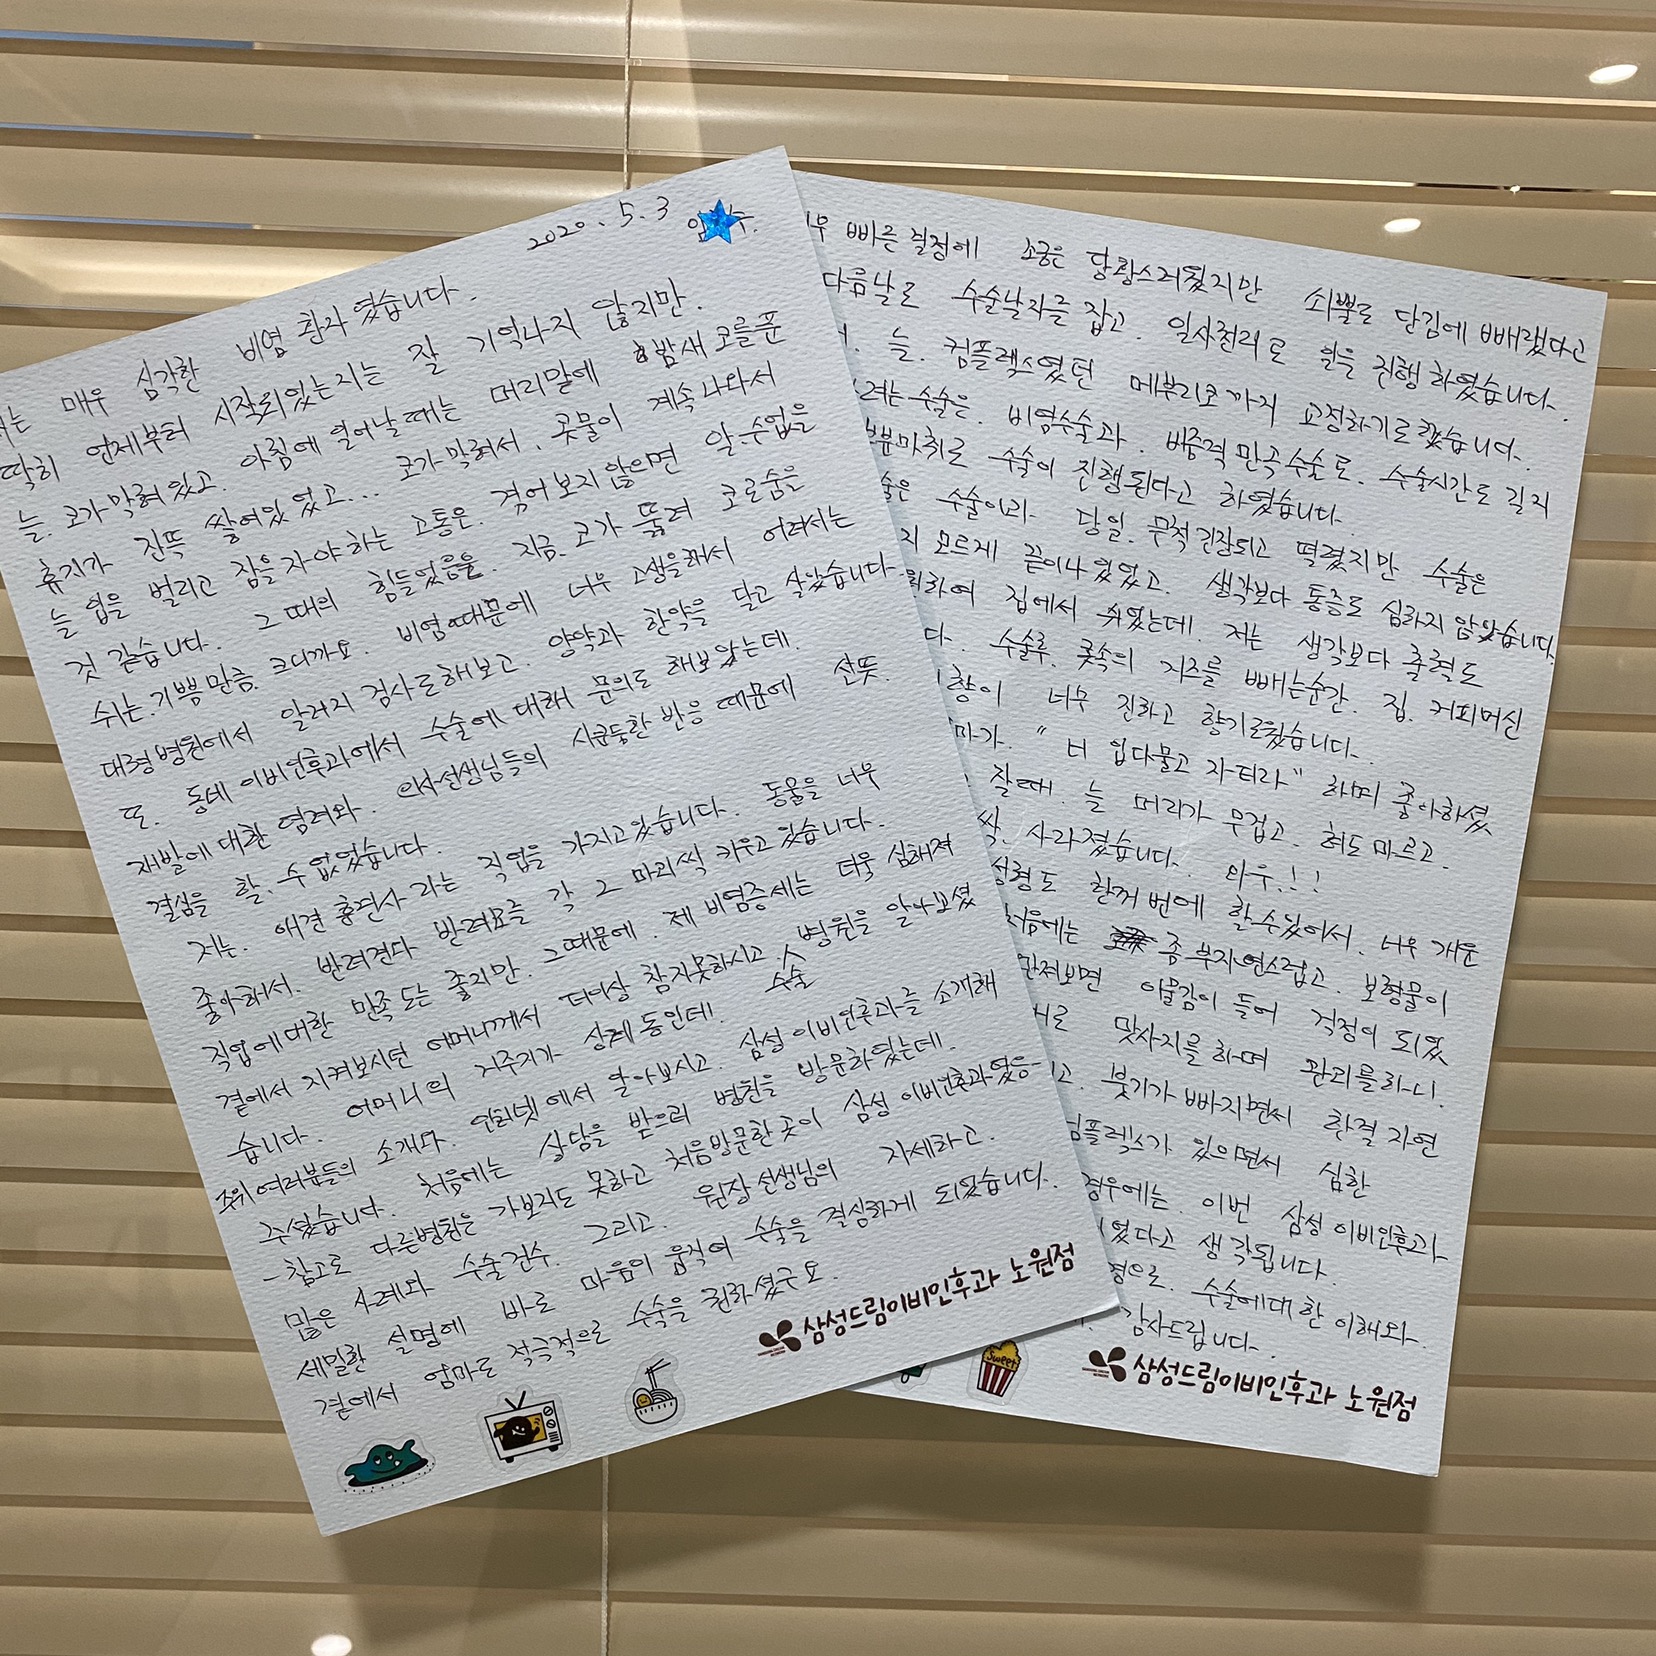 2020. 5. 3
저는 매우 심각한 비염 환자 였습니다.
딱히 언제부터 시작되었는지는 잘 기억나지 않지만.
늘. 코가 막혀있고. 아침에 일어날때는 머리맡에 밤새 코를 푼
휴지가 잔뜩 쌓여있었고... 코가 막혀서. 콧물이 계속 나와서
늘 입을 벌리고 잠을 자야 하는 고통은. 겪어보지 않으면 알.수없을
것 같습니다. 그 때의 힘들었음을. 지금. 코가 뚫려 코로숨을
쉬는.기쁨만큼. 크디까요. 비염때문에 너무 고생을해서 어려서는
대형병원에서 알러지 검사도해보고. 양약과 한약을 달고 살았습니다.
또. 동네 이비인후과에서 수술에 대해 문의도 해보았는데.
재발에 대한 염려와. 의사선생님들의 시큰둥한 반응 때문에 선뜻.
결심을 할. 수 없었습니다.
저는. 애견 훈련사 라는 직업을 가지고있습니다. 동물을 너무
좋아해서. 반려견다 반려묘를 각 그 마리씩 키우고 있습니다.
직업에대한 만족도는 좋지만. 그때문에. 제 비염증세는 더욱 심해져
곁에서 지켜보시던 어머니께서 더이상 참지못하시고 수술 병원을 알아보셨
습니다. 어머니의 거주지가 상계동인데.
주위여러분들의 소개와. 인터넷에서 알아보시고. 삼성 이비인후과를 소개해
주셨습니다. 처음에는 상담을 받으러 병원을 방문하였는데.
-참고로 다른병원은 가보지도 못하고 처음방문한 곳이 삼성 이비인후과였음-
많은 사례와 수술건수. 그리고. 원장 선생님의 자세하고.
세밀한 설명에 바로 마음이 움직여 수술을 결심하게 되었습니다.
곁에서 엄마도 적극적으로 수술을 권하셨구요.
삼성드림이비인후과 노원점
빠른 결정에 조금은 당황스러웠지만 쇠뿔도 단김에 빼랬다고
다음날로 수술날자를 잡고. 일사천리로 일을 진행하였습니다.
늘. 컴플렉스였던 메부리코까지 교정하기로 했습니다.
수술은. 비염수술과. 비중격만곡수술로. 수술시간도 길지
부분마취로 수술이 진행된다고 하였습니다.
수술이라 당일. 무척 긴장되고 떨렸지만 수술은
모르게 끝이나 있었고. 생각보다 통증도 심하지 않았습니다.
위하여 집에서 쉬었는데. 저는 생각보다 출혈도
수술후. 콧속의 거즈를 빼는순간. 집. 커피머신
향이 너무 진하고 향기로웠습니다.
엄마가. "너 입다물고 자더라" 하며 좋아하셨
잘때. 늘 머리가 무겁고. 혀도 마르고.
싹. 사라졌습니다. 와우.!!
성형도 한꺼번에 할수있어서. 너무 개운
처음에는 좀 부자연스럽고. 보형물이
만져보면 이물감이 들어 걱정이 되었
맛사지를 하며 관리를하니.
붓기가 빠지면서 한결 자연
컴플렉스가 있으면서 심한
경우에는. 이번 삼성 이비인후과
생각됩니다.
수술에대한 이해와
감사드립니다.
Sweet
삼성드림이비인후과 노원점